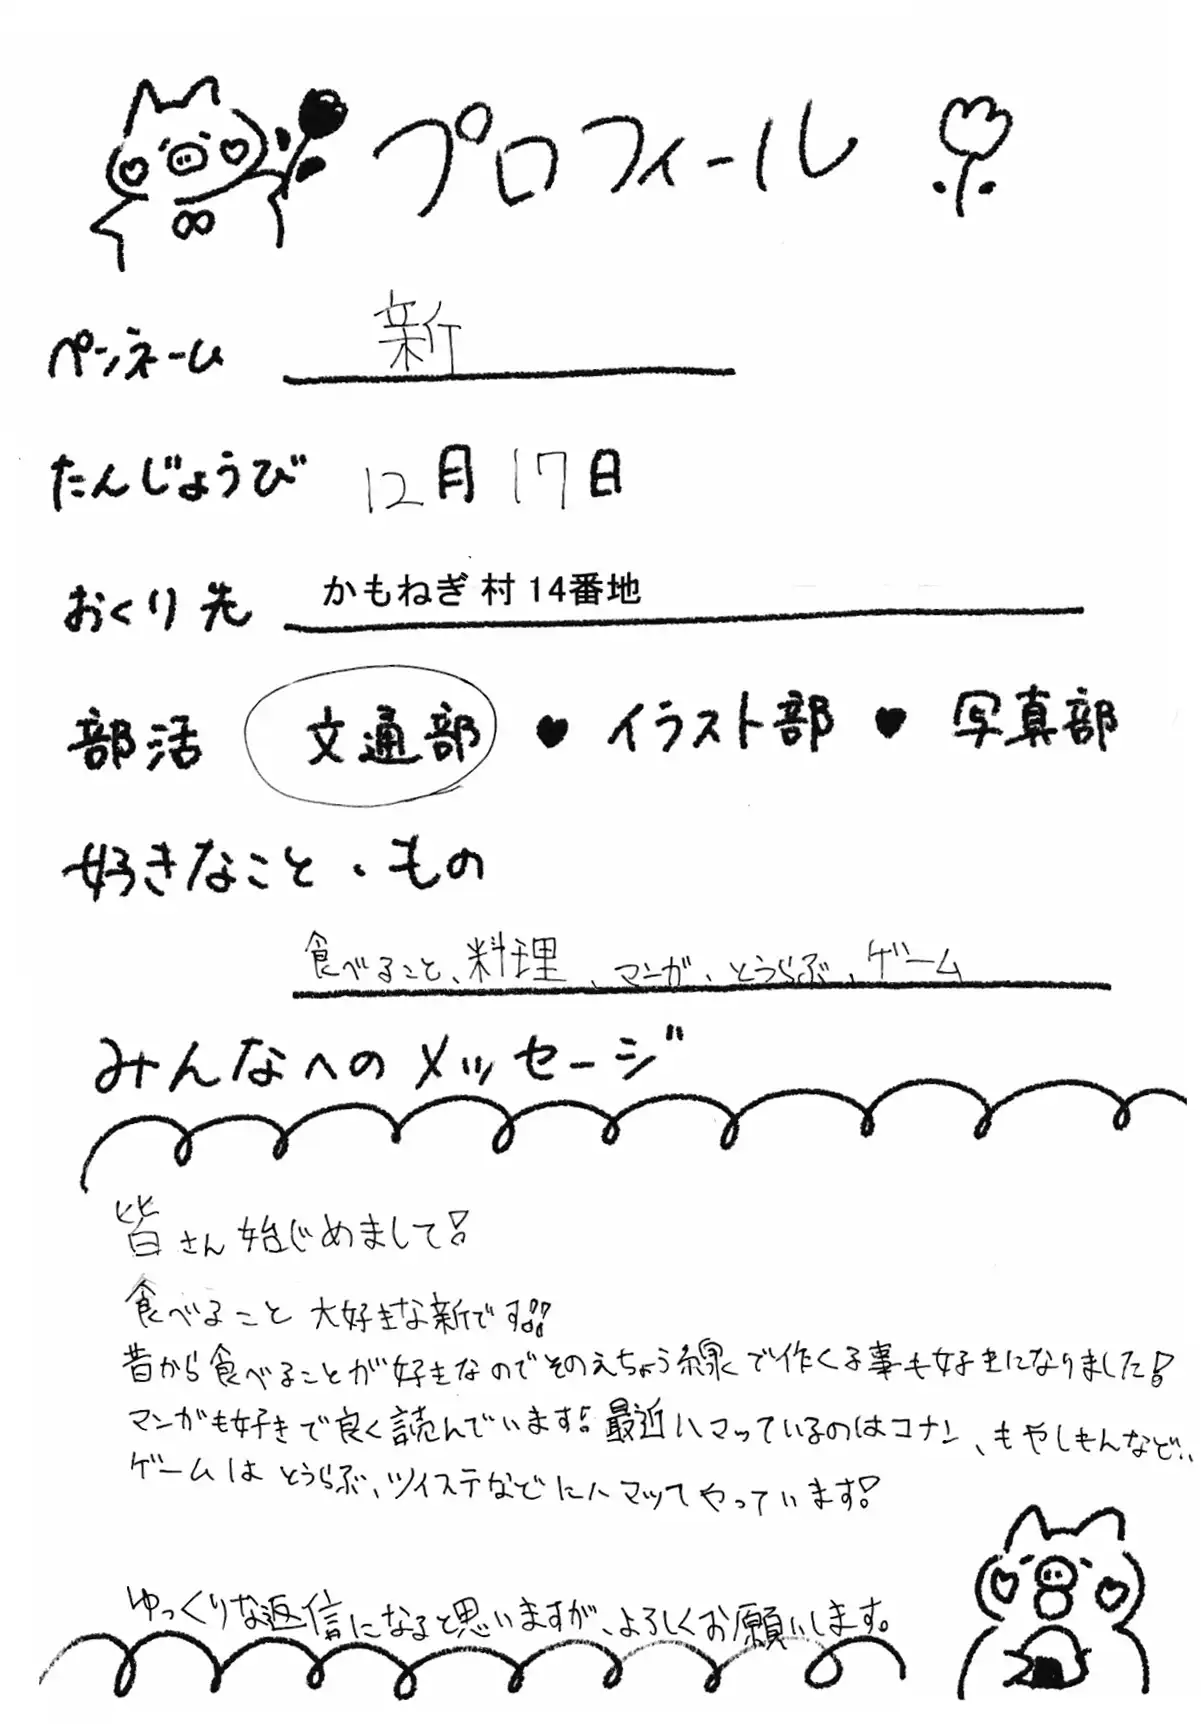 プロフィール
ペンネーム 新
たんじょうび 12月17日
おくり先 かもねぎ村14番地
部活 文通部 ♥ イラスト部 ♥ 写真部
好きなこと・もの
食べること、料理、マンガ、とうらぶ、ゲーム
みんなへのメッセージ
皆さん始じめまして!
食べること大好きな新です!!
昔から食べることが好きなのでそのえちょう線で作くる事も好きになりました!
マンガも好きで良く読んでいます!最近ハマっているのはコナン、もやしもんなど、、
ゲームはとうらぶ、ツイステなどにハマってやっています!
ゆっくりな返信になると思いますが、よろしくお願いします。